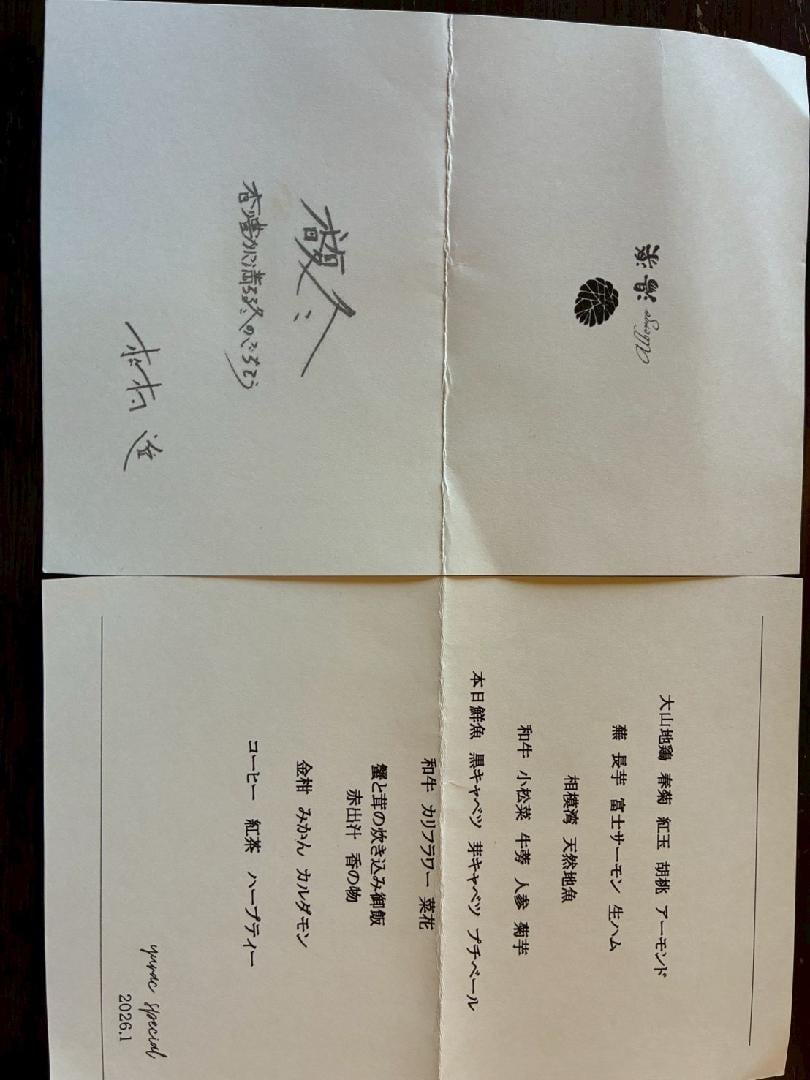 馥冬
香り豊かに満ちる冬のごちそう
大山地鶏 春菊 紅玉 胡桃 アーモンド
蕪 長芋 富士サーモン 生ハム
相模湾 天然地魚
和牛 小松菜 牛蒡 人参 菊芋
本日鮮魚 黒キャベツ 芽キャベツ プチベール
和牛 カリフラワー 菜花
蟹と茸の炊き込み御飯
赤出汁 香の物
金柑 みかん カルダモン
コーヒー 紅茶 ハーブティー
special
2026.1